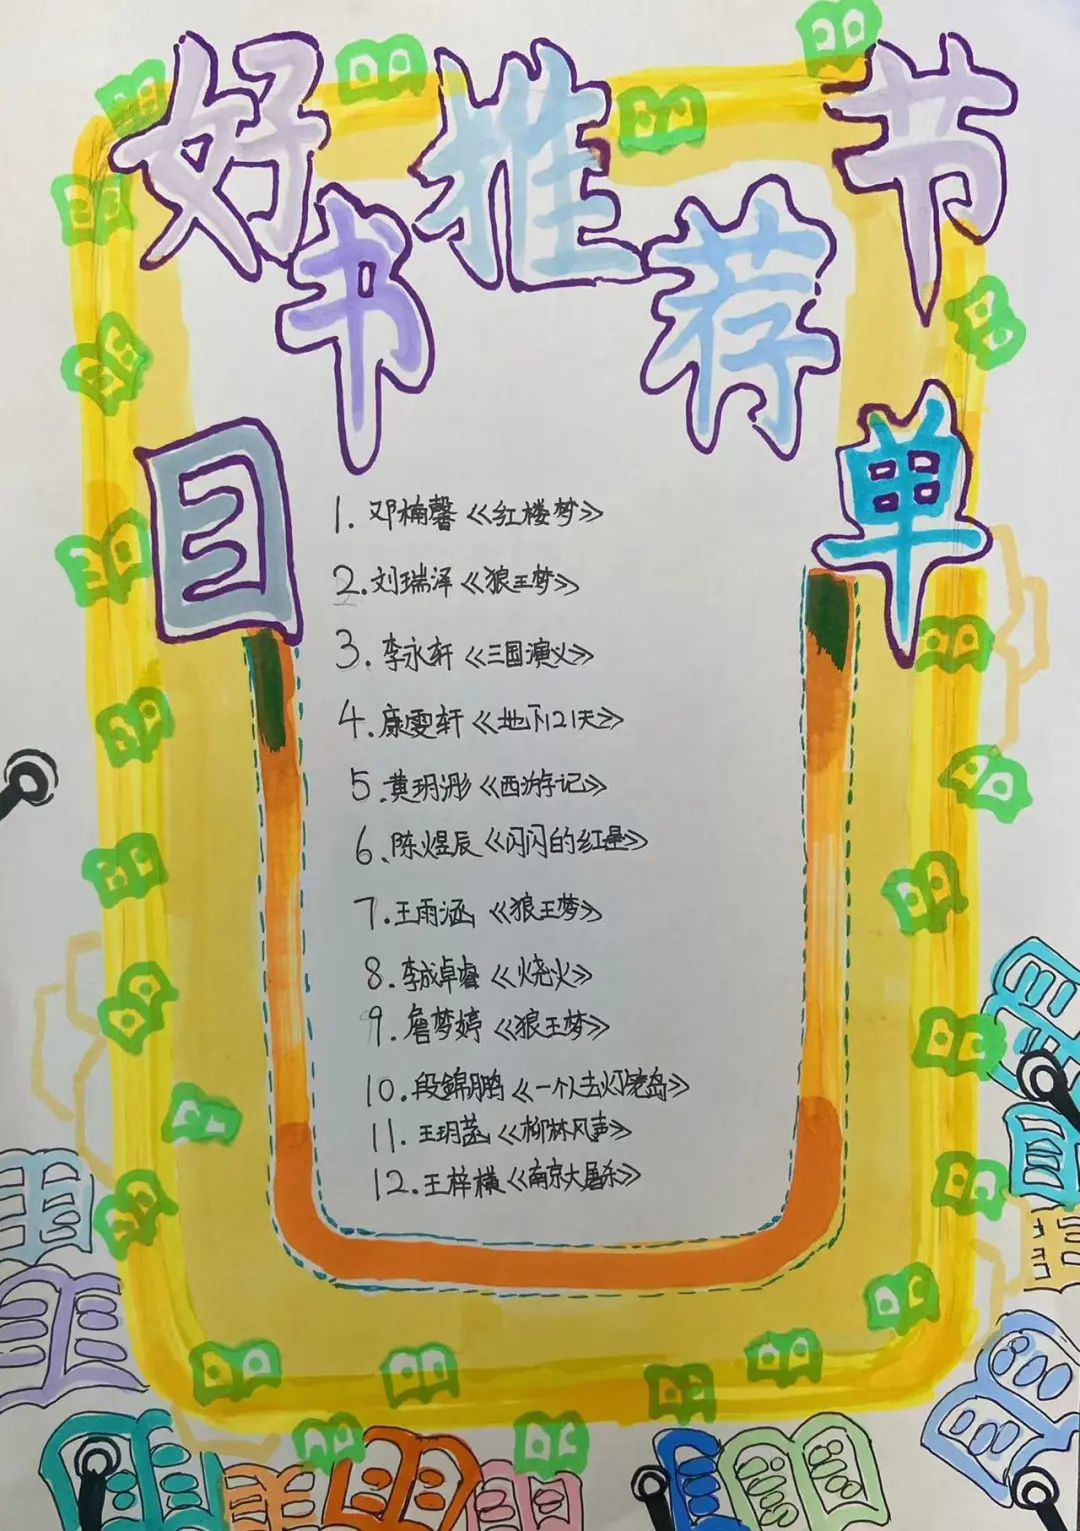 好书推荐节
目单
1. 邓楠馨《红楼梦》
2. 刘瑞泽《狼王梦》
3. 李永轩《三国演义》
4. 康雯轩《地下121天》
5. 黄玥浵《西游记》
6、陈煜辰《闪闪的红星》
7. 王雨涵《狼王梦》
8. 李成卓睿《烧火》
9. 詹梦婷《狼王梦》
10. 段錦鹏《一个人去灯塔岛》
11. 王玥菡《柳林风声》
12. 王梓横《南京大屠杀》